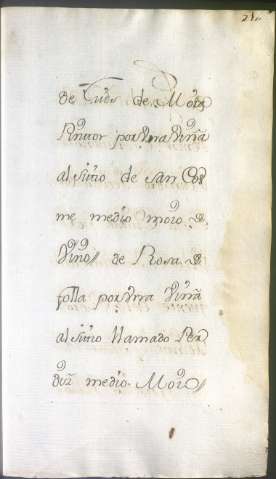 de Luds de Mora
Pintor por Vna Viña
al sitio de san Cos
me medio moro d.
Viños de Rosa d
folla por Vna Viña
al sitio llamado Per
diz medio Moro